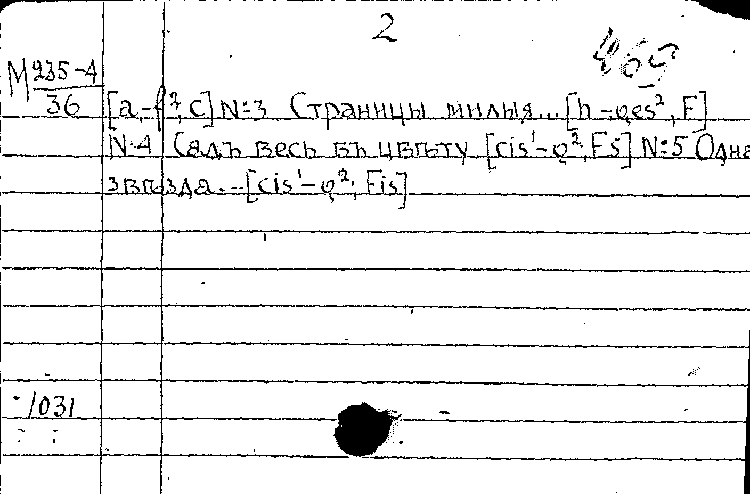 2
469
М 235-4
36
[a-f², c] №3 Страницы милыя... [h-ges², F]
№4 Садъ весь въ цвѣту [cis¹-g², Es] №5 Одна
звѣзда... [cis¹-g², Fis]
1031